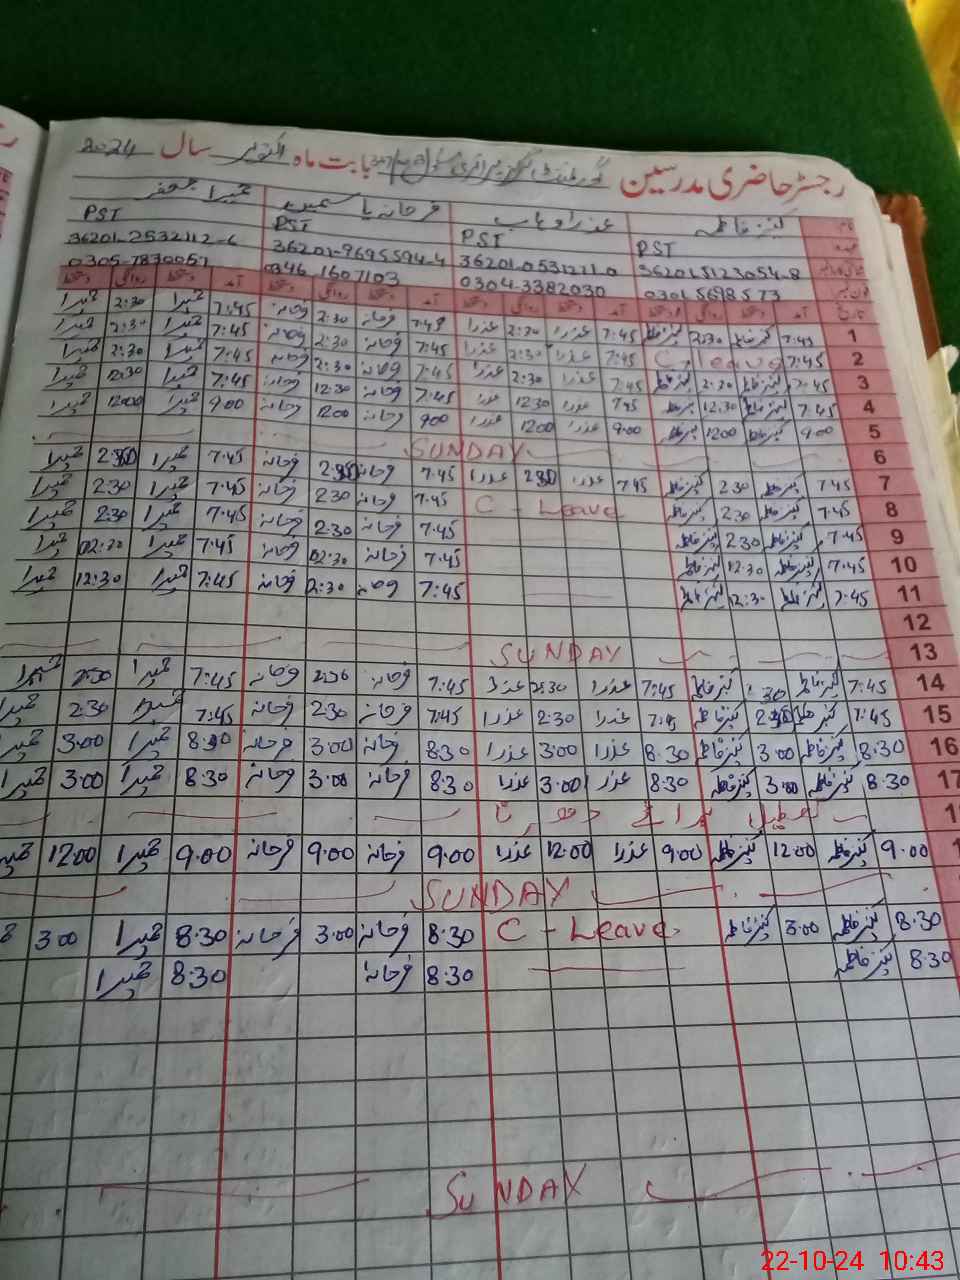 رجسٹر حاضری مدرسین گورنمنٹ گرلز پرائمری سکول بابت ماہ اکتوبر سال 2024
کنیز فاطمہ عذرا وہاب فرحانہ یاسمین حمیرا جعفر
PST PST PST PST
36201-5123054-8 36201-0531221-0 36201-9695594-4 36201-2532112-6
0301 5698573 0304-3382030 0346 1607103 0305-7830051
تاریخ آمد دستخط روانگی دستخط آمد دستخط روانگی دستخط آمد دستخط روانگی دستخط آمد دستخط روانگی دستخط
1 7:45 کنیز فاطمہ 2:30 کنیز فاطمہ 7:45 عذرا 2:30 عذرا 7:45 فرحانہ 2:30 فرحانہ 7:45 حمیرا 2:30 حمیرا
2 7:45 C-Leave 7:45 عذرا 2:30 عذرا 7:45 فرحانہ 2:30 فرحانہ 7:45 حمیرا 2:30 حمیرا
3 7:45 کنیز فاطمہ 2:30 کنیز فاطمہ 7:45 عذرا 2:30 عذرا 7:45 فرحانہ 2:30 فرحانہ 7:45 حمیرا 2:30 حمیرا
4 7:45 کنیز فاطمہ 12:30 کنیز فاطمہ 7:45 عذرا 12:30 عذرا 7:45 فرحانہ 12:30 فرحانہ 7:45 حمیرا 12:30 حمیرا
5 9:00 کنیز فاطمہ 1200 کنیز فاطمہ 9:00 عذرا 1200 عذرا 900 فرحانہ 1200 فرحانہ 900 حمیرا 1200 حمیرا
6 SUNDAY
7 7:45 کنیز فاطمہ 2:30 کنیز فاطمہ 7:45 عذرا 230 عذرا 7:45 فرحانہ 2:30 فرحانہ 7:45 حمیرا 2:30 حمیرا
8 7:45 کنیز فاطمہ 2:30 کنیز فاطمہ C-Leave 7:45 فرحانہ 2:30 فرحانہ 7:45 حمیرا 2:30 حمیرا
9 7:45 کنیز فاطمہ 2:30 کنیز فاطمہ 7:45 فرحانہ 2:30 فرحانہ 7:45 حمیرا 2:30 حمیرا
10 7:45 کنیز فاطمہ 12:30 کنیز فاطمہ 7:45 فرحانہ 02:30 فرحانہ 7:45 حمیرا 02:30 حمیرا
11 7:45 کنیز فاطمہ 12:30 کنیز فاطمہ 7:45 فرحانہ 12:30 فرحانہ 7:45 حمیرا 12:30 حمیرا
12
13 SUNDAY
14 7:45 کنیز فاطمہ :30 کنیز فاطمہ 7:45 عذرا 2:30 عذرا 7:45 فرحانہ 2:30 فرحانہ 7:45 حمیرا 2:30 حمیرا
15 7:45 کنیز فاطمہ 2:30 کنیز فاطمہ 7:45 عذرا 2:30 عذرا 7:45 فرحانہ 2:30 فرحانہ 7:45 حمیرا 2:30 حمیرا
16 8:30 کنیز فاطمہ 3:00 کنیز فاطمہ 8:30 عذرا 3:00 عذرا 8:30 فرحانہ 3:00 فرحانہ 8:30 حمیرا 3:00 حمیرا
17 8:30 کنیز فاطمہ 3:00 کنیز فاطمہ 8:30 عذرا 3:00 عذرا 8:30 فرحانہ 3:00 فرحانہ 8:30 حمیرا 3:00 حمیرا
تعطیل برائے
9:00 کنیز فاطمہ 12:00 کنیز فاطمہ 9:00 عذرا 12:00 عذرا 9:00 فرحانہ 9:00 فرحانہ 9:00 حمیرا 1200
SUNDAY
8:30 کنیز فاطمہ 3:00 کنیز فاطمہ C-Leave 8:30 فرحانہ 3:00 فرحانہ 8:30 حمیرا 3:00
8:30 کنیز فاطمہ 8:30 فرحانہ 8:30 حمیرا
SUNDAY
22-10-24 10:43